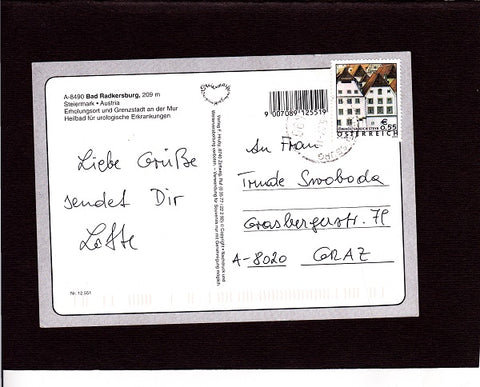 A-8490 Bad Radkersburg, 209 m
Steiermark • Austria
Erholungsort und Grenzstadt an der Mur
Heilbad für urologische Erkrankungen
Liebe Grüße
sendet Dir
Lotte
Nr. 12.951
9007089125519
€ 0,55
ÖSTERREICH
An Frau
Trude Swoboda
Grasbergerstr. 71
A-8020 GRAZ